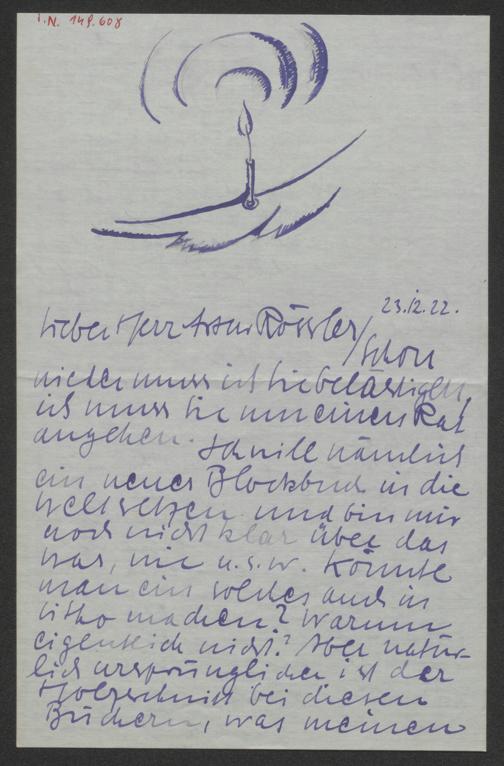 I.N. 149.608
23.12.22.
Lieber Herr Artur Rössler/
Schon
wieder muss ich Sie belästigen,
ich muss Sie um einen Rat
angehen. Ich will nämlich
ein neues Blockbuch in die
Welt setzen und bin mir
noch nicht klar über das
was, wie u.s.w. Könnte
man ein solches auch in
Litho machen? Warum
eigentlich nicht? Aber natür-
lich ursprünglicher ist der
Holzschnitt bei diesen
Büchern, was meinen